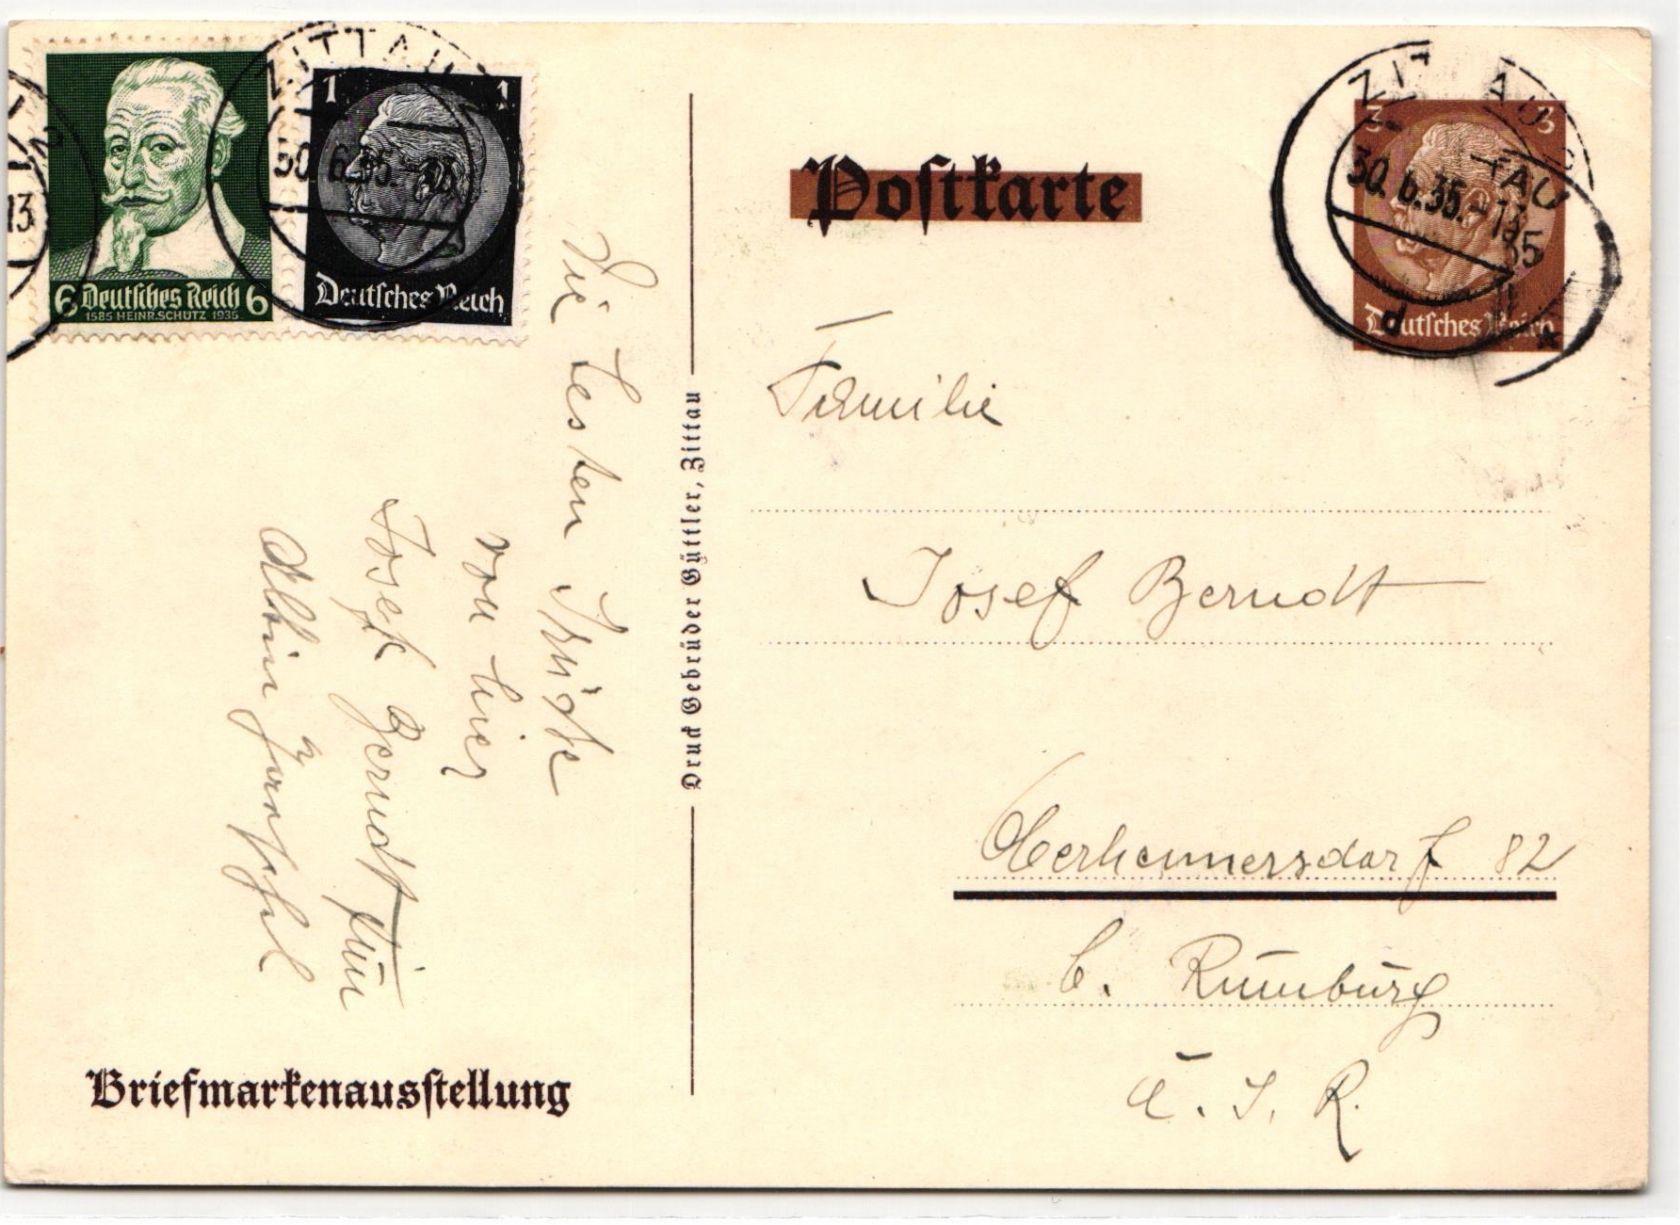 ZITTAU
30.6.35.-13
6 Deutsches Reich 6
1585 HEINR. SCHÜTZ 1935
1 1
Deutsches Reich
Postkarte
3 3
ZITTAU
30.6.35.-13
d
Deutsches Reich
Die besten Grüße
von hier
Josef Berndt jun
Albin
Druck Gebrüder Güttler, Zittau
Familie
Josef Berndt
Oberhennersdorf 82
b. Rumburg
Č. S. R.
Briefmarkenausstellung